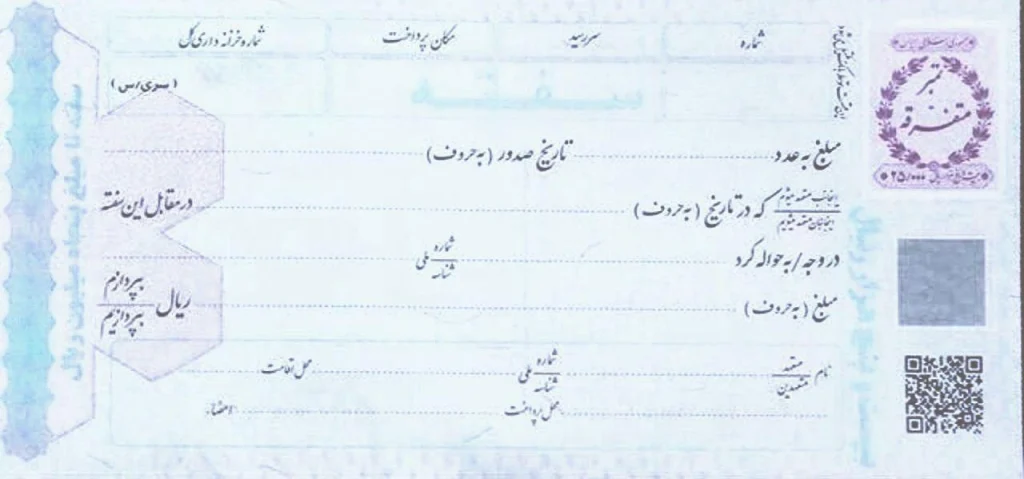 شماره سررسید مکان پرداخت شماره خزانه داری کل
سفته
(سری/س)
جمهوری اسلامی ایران
تمبر
متفرقه
۲۵/۰۰۰
مبلغ به عدد تاریخ صدور (به حروف)
اینجانب متعهد میشوم
اینجانبان متعهد میشویم
که در تاریخ (به حروف) در مقابل این سفته
در وجه/به حواله کرد شماره ملی
شناسه
مبلغ (به حروف) ریال بپردازم
بپردازیم
نام متعهد شماره ملی محل اقامت
متعهدین شناسه
محل پرداخت امضاء
سفته تا مبلغ پنجاه میلیون ریال
بیست و پنج هزار ریال